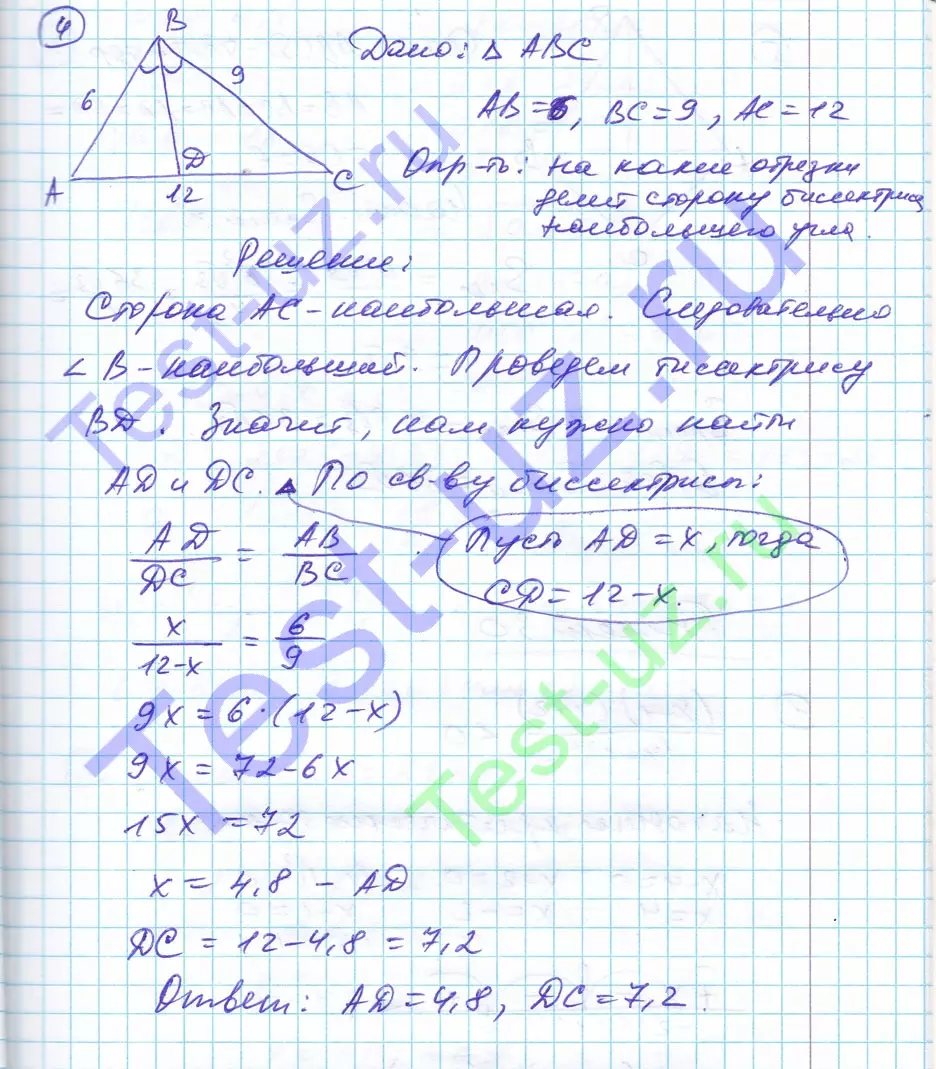 4
B
6
9
D
A
12
C
Дано: Δ ABC
AB = 6, BC = 9, AC = 12
Опр-ть: на какие отрезки
делит сторону биссектриса
наибольшего угла.
Решение:
Сторона AC - наибольшая. Следовательно
∠ B - наибольший. Проведем биссектрису
BD. Значит, нам нужно найти
AD и DC. ▲ По св-ву биссектрисы:
AD/DC = AB/BC
Пусть AD = x, тогда
CD = 12 - x.
x/12-x = 6/9
9x = 6·(12-x)
9x = 72 - 6x
15x = 72
x = 4,8 - AD
DC = 12 - 4,8 = 7,2
Ответ: AD = 4,8, DC = 7,2.
Test-uz.ru
Test-uz.ru
Test-uz.ru